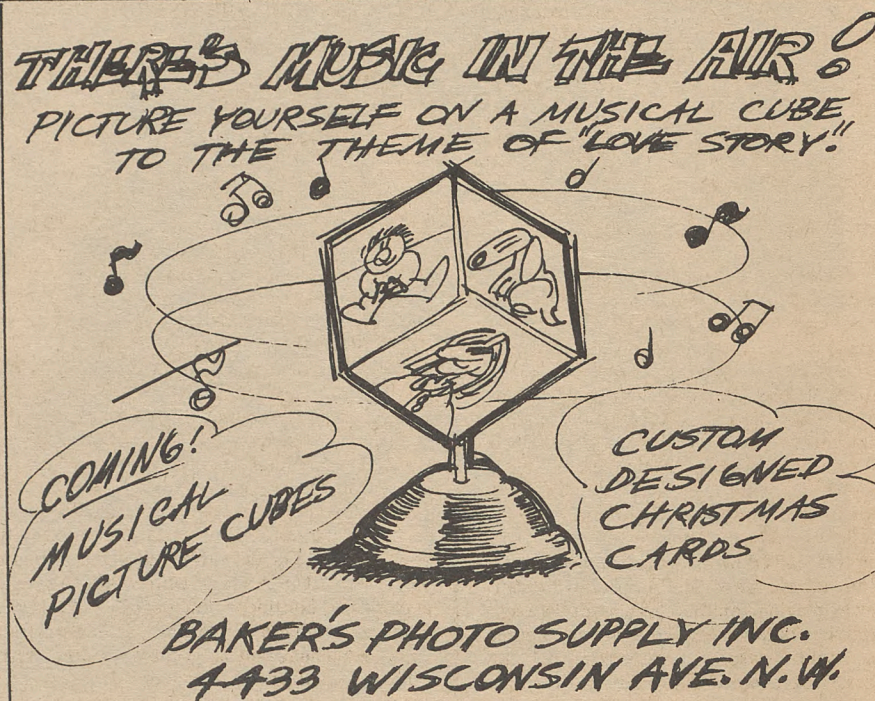 THERE'S MUSIC IN THE AIR!
PICTURE YOURSELF ON A MUSICAL CUBE
TO THE THEME OF "LOVE STORY."
COMING!
MUSICAL
PICTURE CUBES
CUSTOM
DESIGNED
CHRISTMAS
CARDS
BAKER'S PHOTO SUPPLY INC.
4433 WISCONSIN AVE. N.W.